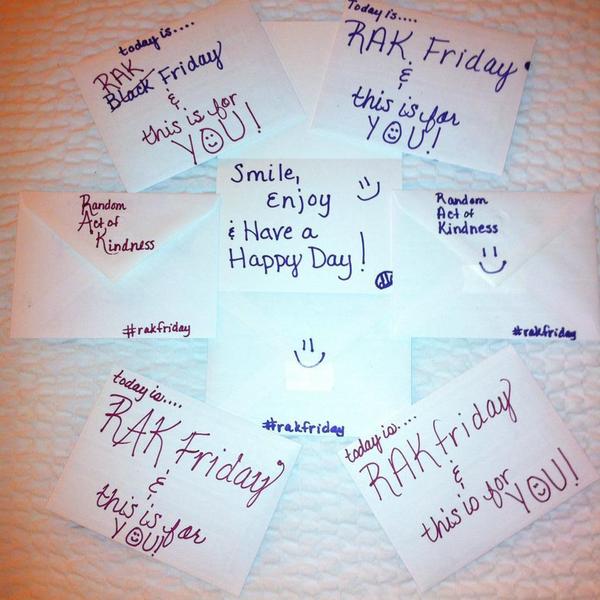 today is....
RAK
Black Friday
&
this is for
YOU!
Today is....
RAK Friday
&
this is for
YOU!
Random
Act of
Kindness
#rakfriday
Smile,
Enjoy
& Have a
Happy Day!
Random
Act of
Kindness
#rakfriday
#rakfriday
today is....
RAK Friday
&
this is for
YOU!
today is....
RAK friday
&
this is for YOU!